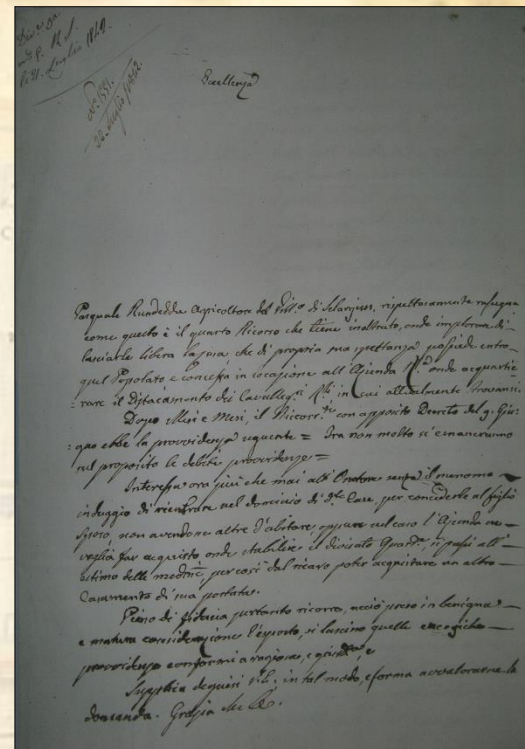 li 21. Luglio 1842.
No 1551.
22. Luglio 1842.
Eccellenza
Pasquale Rundeddu Agricoltore del Vill.o di Selargius, rispettosamente rassegna
come questo è il quarto Ricorso che tiene inoltrato, onde implorare di
lasciarle libera la casa, che di propria sua spettanza possiede entro
quel Popolato e concessa in locazione all'Azienda R.le onde acquartie-
:rare il Distaccamento dei Cavallegg.i R.li in cui attualmente trovansi.
Dopo Mesi e Mesi, il Ricorr.te con apposito Decreto del 9. Giu-
:gno ebbe la provvidenza seguente = Fra non molto si emaneranno
nel proposito le debite provvidenze =
Interessa ora più che mai all' Oratore senza il menomo
induggio di rientrare nel dominio di d.te Case, per concederle al figlio
sposo, non avendone altre d'abitare, oppure nel caso l'Azienda ne
voglia far acquisto onde stabilire il divisato Quart.re, si passi all'
estimo delle medme, per così dal ricavo poter acquistare un altro
Casamento di sua portata.
Pieno di fiducia pertanto ricorre, acciò preso in benigna
e matura considerazione l'esposto, si lascino quelle
provvidenze conformi a ragione, e giust.a, e
Supplica degnisi V.E. in tal modo, e forma avvalorarne la
domanda. Grazia che &.